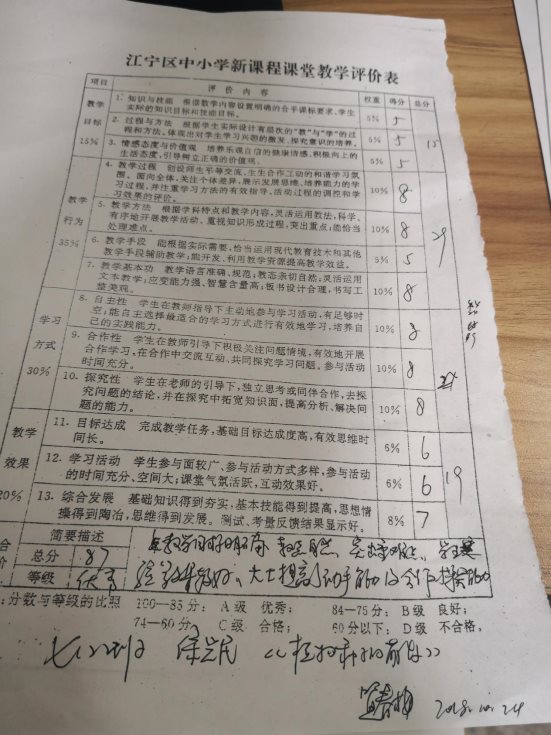 江宁区中小学新课程课堂教学评价表
项目 评价内容 权重 得分 总分
教学目标 15%
1. 知识与技能 根据教学内容设置明确的合乎课标要求、学生
实际的知识目标和技能目标。 5% 5
2. 过程与方法 根据学生实际设计有层次的“教”与“学”的过
程和方法。体现出对学生学习兴趣的激发、探究意识的培养。 5% 5 15
3. 情感态度与价值观 培养乐观自信的健康情感、积极向上的
生活态度,引导树立正确的价值观。 5% 5
教学行为 35%
4. 教学过程 创设师生平等交流、生生合作互动的和谐学习氛
围。面向全体,关注个体差异,展示发展思维、培养能力的学
习过程,并注重学习方法的有效指导、活动过程的调控和学
习效果的评价。 10% 8
5. 教学方法 根据学科特点和教学内容,灵活运用教法,科学、
有序地开展教学活动、重视知识形成过程,突出重点;能恰当
处理难点。 10% 8 29
6. 教学手段 能根据实际需要,恰当运用现代教育技术和其他
教学手段辅助教学;能开发、利用教学资源提高教学效益。 5% 5
7. 教学基本功 教学语言准确、规范;教态亲切自然;灵活运用
文本教学;应变能力强、智慧含量高;板书设计合理,书写工
整美观。 10% 8
学习方式 30%
8. 自主性 学生在教师指导下主动地参与学习活动,有足够时
空;能自主选择最适合的学习方式进行有效地学习,培养自
己的实践能力。 10% 8
9. 合作性 学生在教师引导下积极关注问题情境,有效地开展
合作学习,在合作中交流互动、共同探究学习问题。参与活动
时间充分。 10% 8
10. 探究性 学生在老师的引导下,独立思考或同伴合作,去探
究问题的结论,并在探究中拓宽知识面,提高分析、解决问
题的能力。 10% 8
教学效果 20%
11. 目标达成 完成教学任务,基础目标达成度高,有效思维时
间长。 6% 6
12. 学习活动 学生参与面较广、参与活动方式多样,参与活动
的时间充分、空间大;课堂气氛活跃,互动效果好。 6% 6 19
13. 综合发展 基础知识得到夯实,基本技能得到提高,思想情
操得到陶冶,思维得到发展。测试、考量反馈结果显示好。 8% 7
合 简要描述
价 总分 87
等级 优秀
:分数与等级的比照 100—85分: A级 优秀; 84—75分: B级 良好;
74—60分: C级 合格; 60分以下: D级 不合格。
2018.10.24